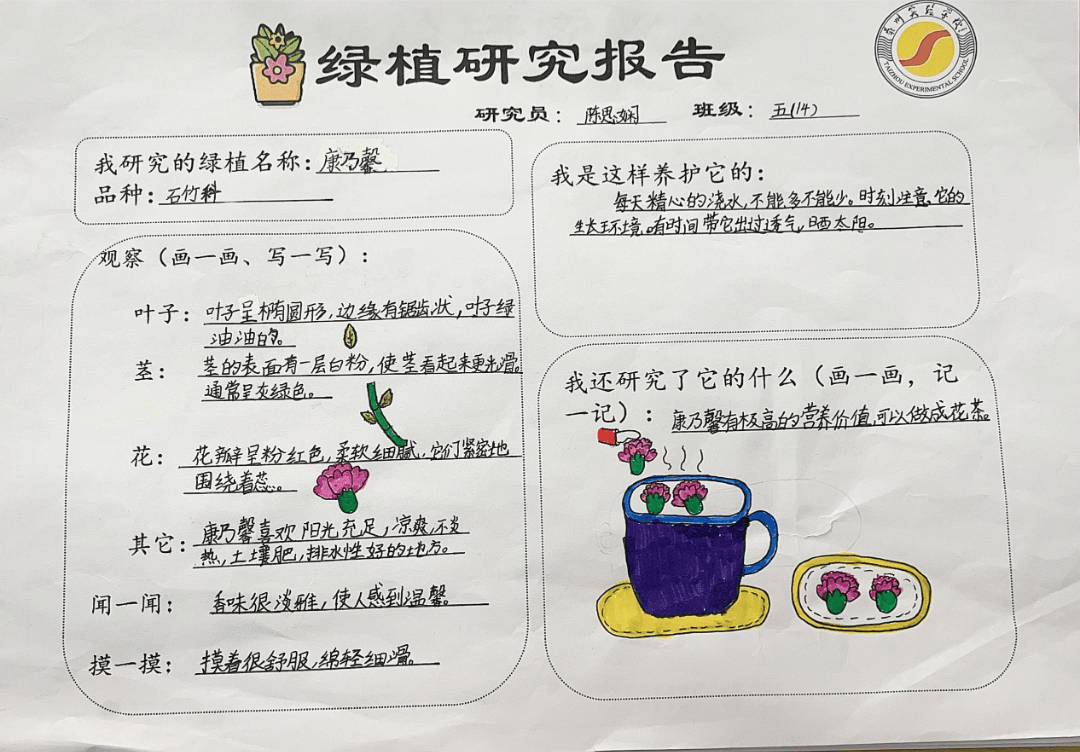 绿植研究报告
泰州实验学校
TAIZHOU EXPERIMENTAL SCHOOL
研究员：陈思娴 班级：五(14)
我研究的绿植名称：康乃馨
品种：石竹科
观察（画一画、写一写）：
叶子：叶子呈椭圆形，边缘有锯齿状，叶子绿
油油的。
茎：茎的表面有一层白粉，使茎看起来更光滑。
通常呈灰绿色。
花：花瓣呈粉红色，柔软细腻，它们紧密地
围绕着蕊。
其它：康乃馨喜欢阳光充足，凉爽，不炎
热，土壤肥，排水性好的地方。
闻一闻：香味很淡雅，使人感到温馨。
摸一摸：摸着很舒服，绵轻细滑。
我是这样养护它的：
每天精心的浇水，不能多不能少。时刻注意它的
生长环境。有时间带它出过透气，晒太阳。
我还研究了它的什么（画一画，记
一记）：康乃馨有极高的营养价值，可以做成花茶。